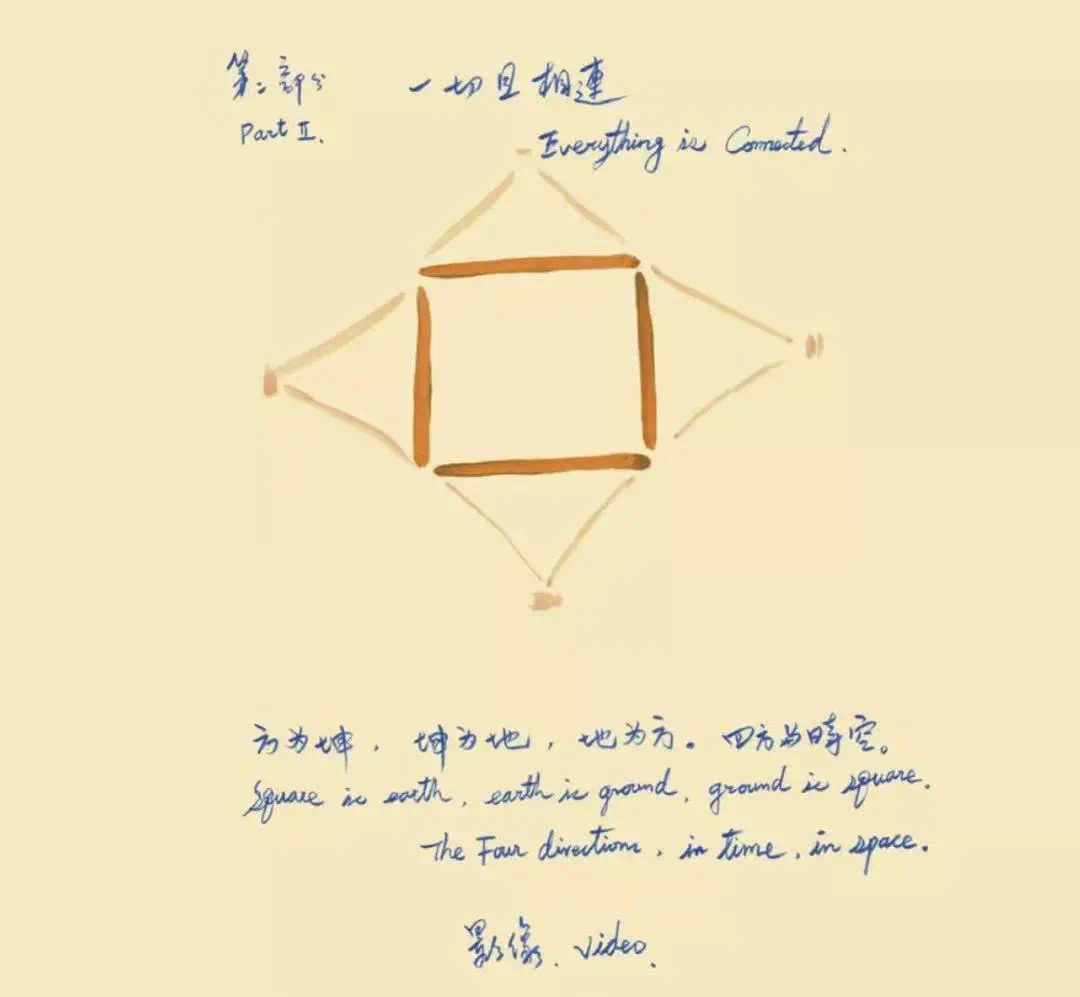 第二部分 一切且相連
Part II.
Everything is Connected.
方为坤，坤为地，地为方。四方为時空。
Square is earth, earth is ground, ground is square.
The Four directions, in time, in space.
影像. Video.